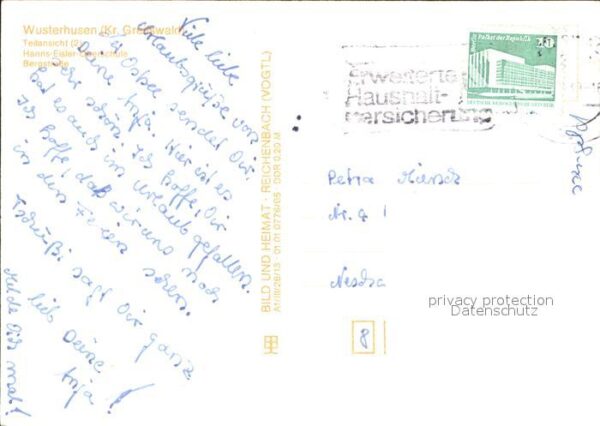 Wusterhusen (Kr. Greifswald)
Teilansicht (2)
Hanns-Eisler-Oberschule
Bergstraße
Viele liebe
Urlaubsgrüße von
der Ostsee sendet Dir
Deine Anja. Hier ist es
sehr schön. Ich hoffe, Dir
hat es auch im Urlaub gefallen.
Ich hoffe daß wir uns noch
in den Ferien sehen.
Tschüßi sagt Dir ganz
lieb Deine
Anja!
Melde Dich mal!
BILD UND HEIMAT · REICHENBACH (VOGTL)
A1/III/26/13 01 01 0776/65 DDR 0,20 M
Erweiterte
Haushalt-
versicherung
Palast der Republik
10
Petra
Nr. 9
8
privacy protection
Datenschutz